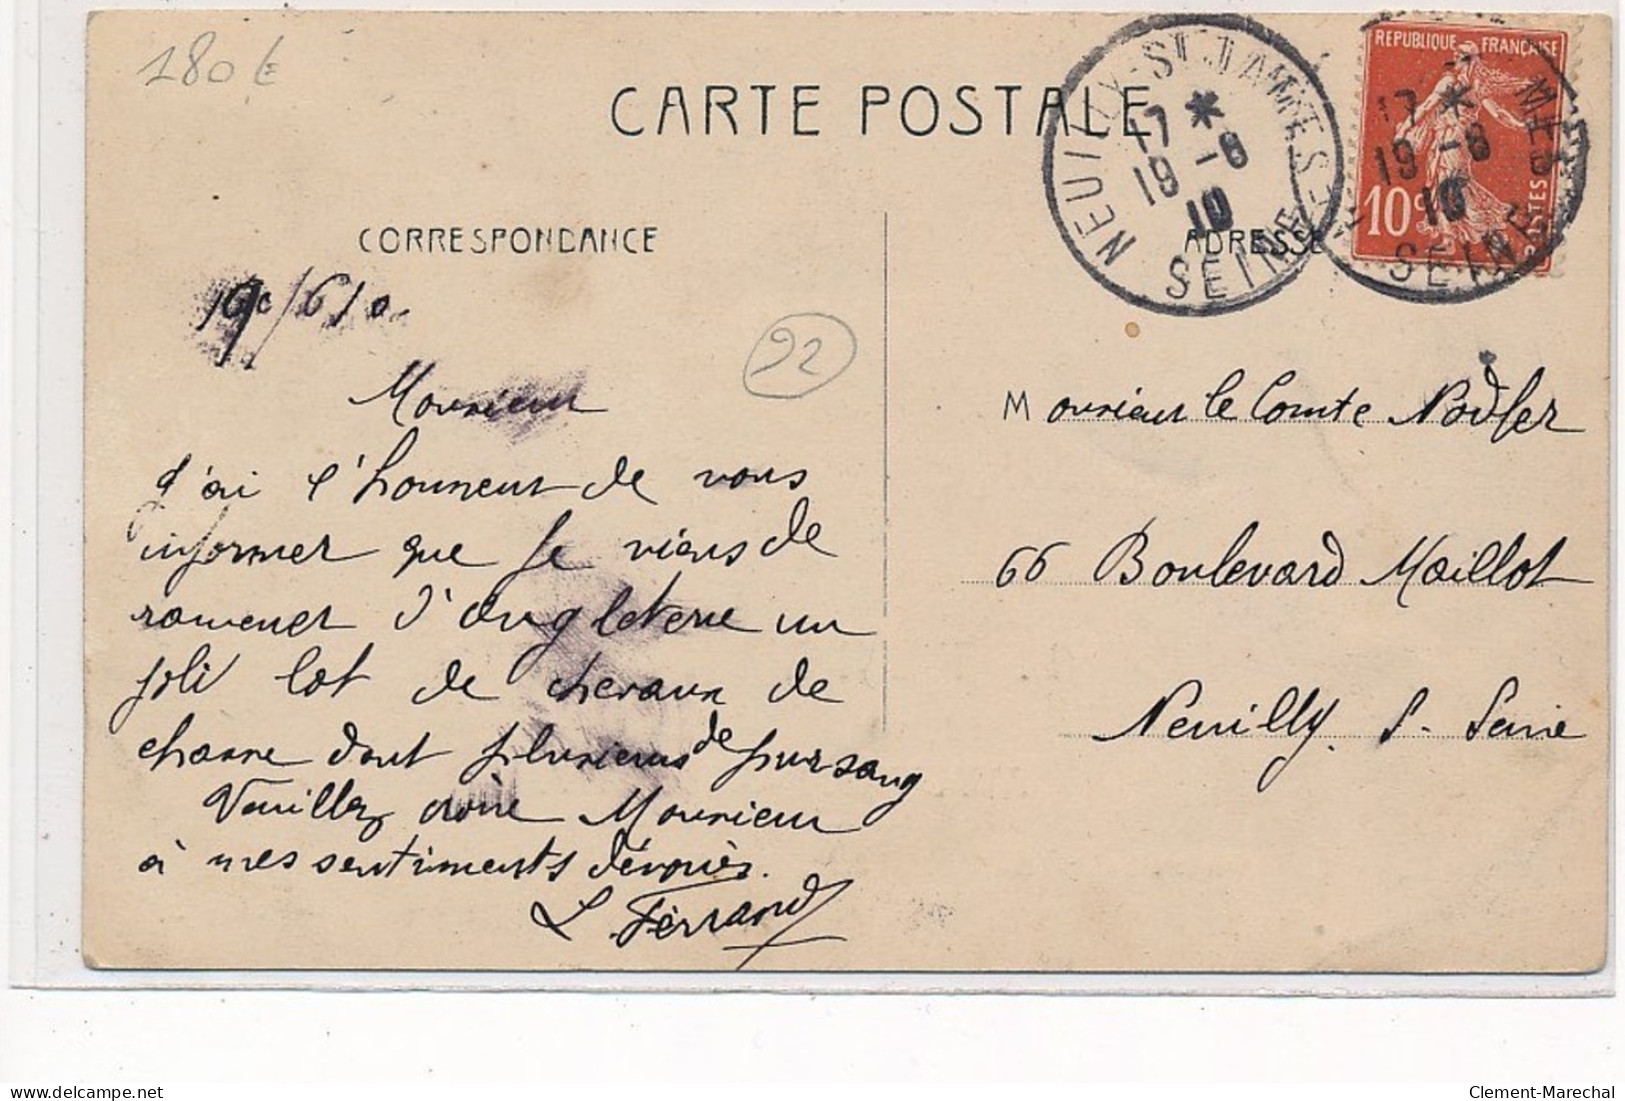 180 €
CARTE POSTALE
NEUILLY-ST-JAMES
17 *
19 -8
10
SEINE
REPUBLIQUE FRANÇAISE
10c
POSTES
17 *
19 -8
10
SEINE
CORRESPONDANCE
ADRESSE
92
Monsieur
J'ai l'honneur de vous
informer que je viens de
ramener d'Angleterre un
joli lot de chevaux de
chasse dont plusieurs de pur sang
Veuillez croire Monsieur
à mes sentiments dévoués.
L. Ferrand
Monsieur le Comte
66 Boulevard Maillot
Neuilly. S. Seine
delcampe.net
Clement-Marechal